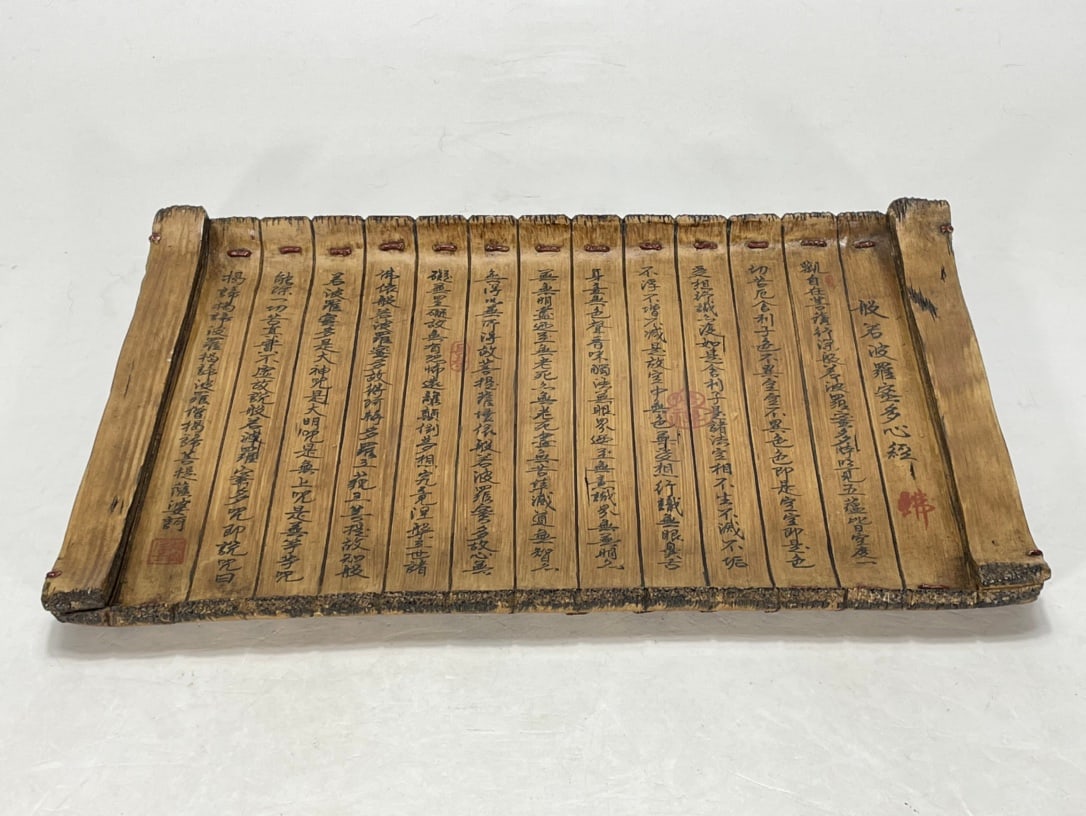 般若波羅蜜多心經 佛
觀自在菩薩行深般若波羅蜜多時照見五蘊皆空度一
切苦厄舍利子色不異空空不異色色即是空空即是色
受想行識亦復如是舍利子是諸法空相不生不滅不垢
不淨不增不減是故空中無色無受想行識無眼鼻舌
身意無色聲香味觸法無眼界迺至無意識界無無明亦
無無明盡迺至無老死亦無老死盡無苦集滅道無智亦
無得以無所得故菩提薩埵依般若波羅蜜多故心無
礙無罣礙故無有恐怖遠離顛倒夢想究竟涅槃三世諸
佛依般若波羅蜜多故得阿耨多羅三藐三菩提故知般
若波羅蜜多是大神咒是大明咒是無上咒是無等等咒
能除一切苦真實不虛故說般若波羅蜜多咒即說咒曰
揭諦揭諦波羅揭諦波羅僧揭諦菩提薩婆訶